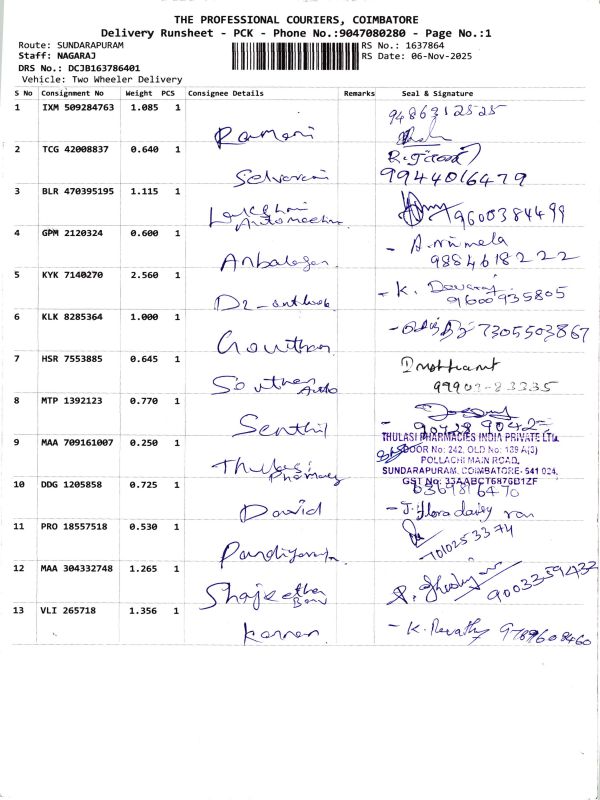 THE PROFESSIONAL COURIERS, COIMBATORE
Delivery Runsheet - PCK - Phone No.:9047080280 - Page No.:1
Route: SUNDARAPURAM RS No.: 1637864
Staff: NAGARAJ RS Date: 06-Nov-2025
DRS No.: DCJB163786401
Vehicle: Two Wheeler Delivery
S No Consignment No Weight PCS Consignee Details Remarks Seal & Signature
1 IXM 509284763 1.085 1 9486312525
Ramani
2 TCG 42008837 0.640 1
Selvarani 9944016479
3 BLR 470395195 1.115 1
Lakshmi 9600384499
4 GPM 2120324 0.600 1 - A. nirmela
Anbalagan 9854618222
5 KYK 7140270 2.560 1 - K.
9600935805
6 KLK 8285364 1.000 1 7305503867
Gouthan
7 HSR 7553885 0.645 1
Southern Auto
8 MTP 1392123 0.770 1
Senthil
THULASI PHARMACIES INDIA PRIVATE LTD.
9 MAA 709161007 0.250 1 DOOR No: 242, OLD No: 139 A(3)
POLLACHI MAIN ROAD,
Thulasi Pharmacy SUNDARAPURAM, COIMBATORE- 541 024.
10 DDG 1205858 0.725 1 GST No: 33AABCT6876B1ZF
David - J. Flora
11 PRO 18557518 0.530 1
Pandiyan 7010253374
12 MAA 304332748 1.265 1
9003359432
13 VLI 265718 1.356 1 - K. Revathy 9789608460
Kannan